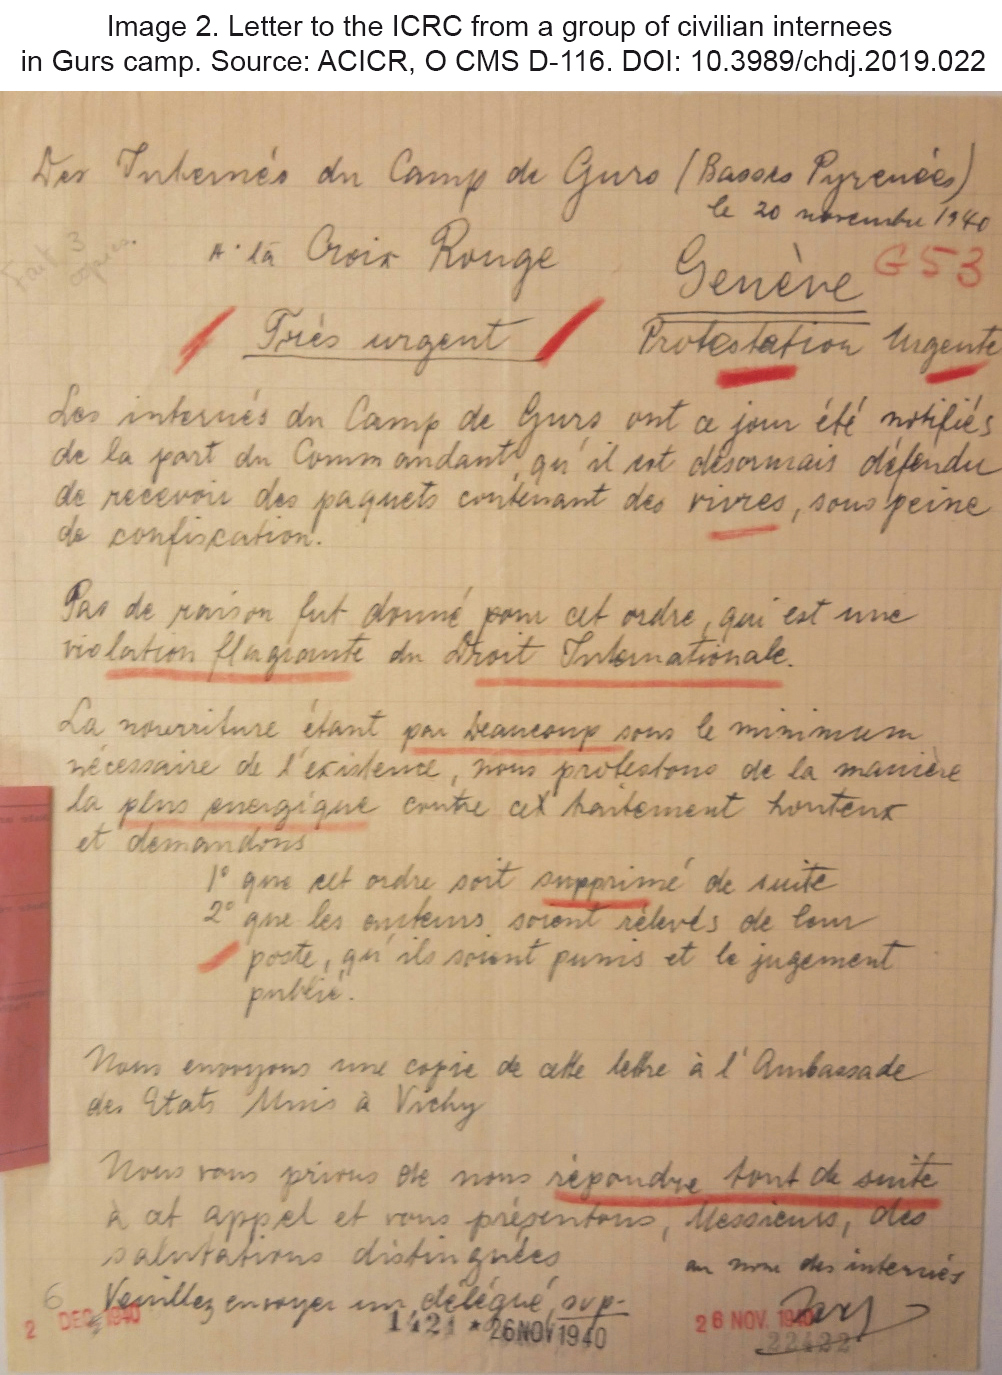 Image 2. Letter to the ICRC from a group of civilian internees
in Gurs camp. Source: ACICR, O CMS D-116. DOI: 10.3989/chdj.2019.022
Des Internés du Camp de Gurs (Basses Pyrenées)
le 20 novembre 1940
Fait 3
copies.
A la Croix Rouge
Genève
G53
Très urgent
Protestation Urgente
Les internés du Camp de Gurs ont ce jour été notifiés
de la part du Commandant, qu'il est désormais défendu
de recevoir des paquets contenant des vivres, sous peine
de confiscation.
Pas de raison fut donné pour cet ordre, qui est une
violation flagrante du Droit Internationale.
La nourriture étant par beaucoup sous le minimum
nécessaire de l'existence, nous protestons de la manière
la plus energique contre cet traitement honteux
et demandons
1° que cet ordre soit supprimé de suite
2° que les auteurs soient rélevés de leur
poste, qu'ils soient punis et le jugement
publié.
Nous envoyons une copie de cette lettre à l'Ambassade
des Etats Unis à Vichy
Nous vous prions de nous répondre tout de suite
à cet appel et vous présentons, Messieurs, des
salutations distinguées
au nom des internés
6 Veuillez envoyer un délégué svp.
2 DEC 1940
1421 * 26 NOV 1940
26 NOV. 1940
22422